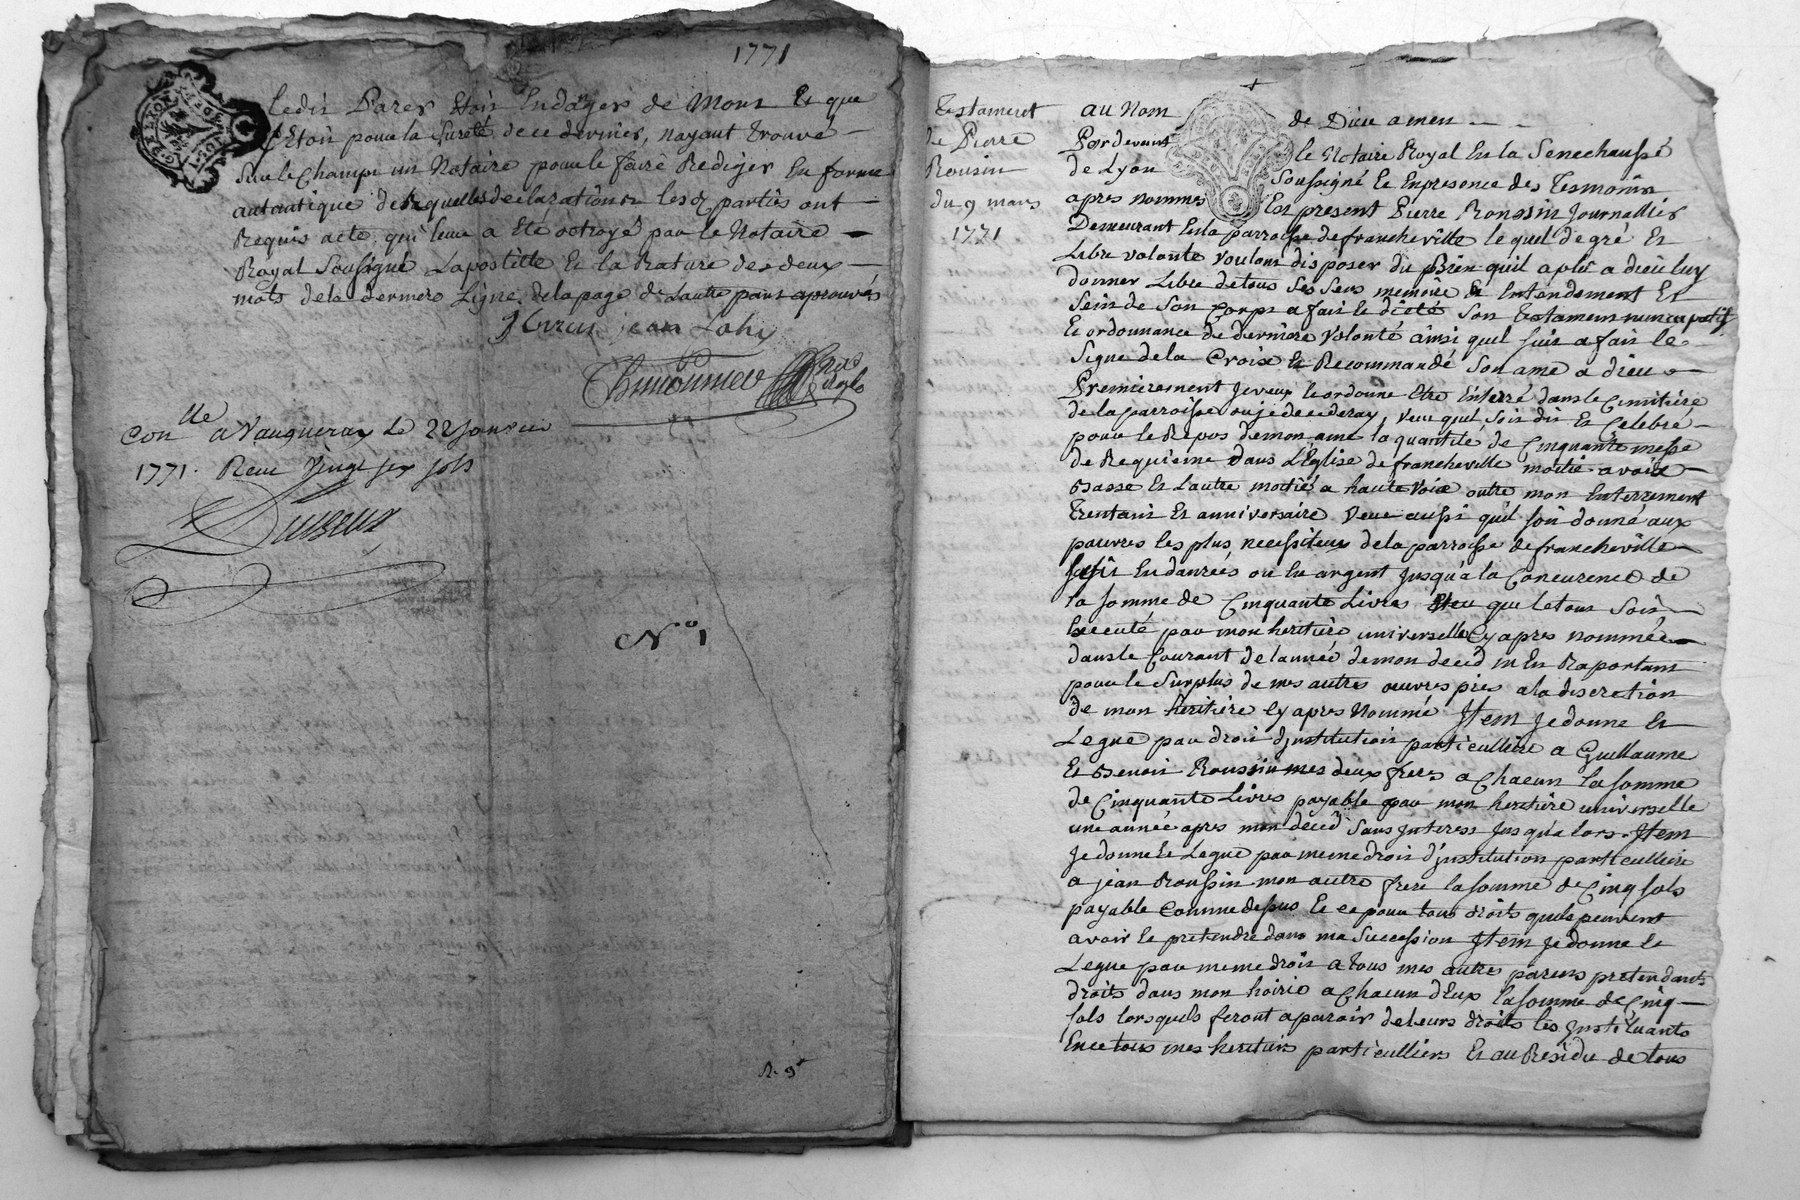 1771
ledit Parer Etoit En danger de Mour Et que
C'Etoit pour la Sureté de ce dernier, nayant trouvé
Sur le Champ un Notaire pour le faire Rediger En forme
autantique desquelles declarations les parties ont
Requis acte qui leur a Eté octroyé par le Notaire
Royal Soussigné Lapostille Et la Rature des deux
mots de la derniere Ligne de la page de Lautre part aprouvés
jean Lohy
Con lle a Vaugneray le 22 janvier
1771. Receu Vingt six sols
N° 1
R. 9
Testament
de Pierre
Rousin
du 9 mars
1771
au Nom de Dieu amen
Pardevant le Notaire Royal En la Senechaussé
de Lyon Soussigné Et En presence des Tesmoins
apres nommes Est present Pierre Roussin Journallier
Demeurant En la parroisse de francheville lequel de gré Et
Libre volonté voulant disposer du Bien quil a plu a dieu luy
donner Libre de tous Ses Sens memoire Et Entendement Et
Sein de Son Corps a fait Et dicté Son testament nuncupatif
Et ordonnance de derniere Volonté ainsi quil Suit a fait le
Signe de la Croix Et Recommandé Son ame a dieu
Premierement Je veux Et ordonne Etre Enterré dans le Cimitiere
de la parroisse ou je decederay, Veux quil Soit dit Et Celebré
pour le Repos de mon ame la quantité de Cinquante messe
de Requieme dans L'Eglise de francheville moitié a voix
Basse Et Lautre moitié a haute Voix outre mon Enterrement
Trentain Et anniversaire Veux aussi quil soit donné aux
pauvres les plus necessiteux de la parroisse de francheville
soit En danrées ou En argent Jusqu'a la Concurence de
la somme de Cinquante Livres Veu que le tout Soit
Executé par mon heritiere universelle Cy apres nommée
dans le Courant de lannée de mon deced m'En Raportant
pour le Surplus de mes autres oeuvres pies a la discretion
de mon heritiere Cy apres Nommé Jtem Je donne Et
Legue par droit d'institution particulliere a Guillaume
Et Benoit Roussin mes deux freres a Chacun la somme
de Cinquante Livres payable par mon heritiere universelle
une année apres mon deced Sans Interest Jusqu'a lors. Jtem
Je donne Et Legue par meme droit d'institution particulliere
a jean Roussin mon autre frere la somme de Cinq sols
payable Comme dessus Et ce pour tous droits quils peuvent
avoir Et pretendre dans ma Succession Jtem Je donne Et
Legue par meme droit a tous mes autres parens pretendants
droits dans mon hoirie a Chacun d'Eux la somme de Cinq
sols lorsquils feront aparoir de leurs droits les Instituants
En ce tous mes heritiers particulliers Et au Residu de tous